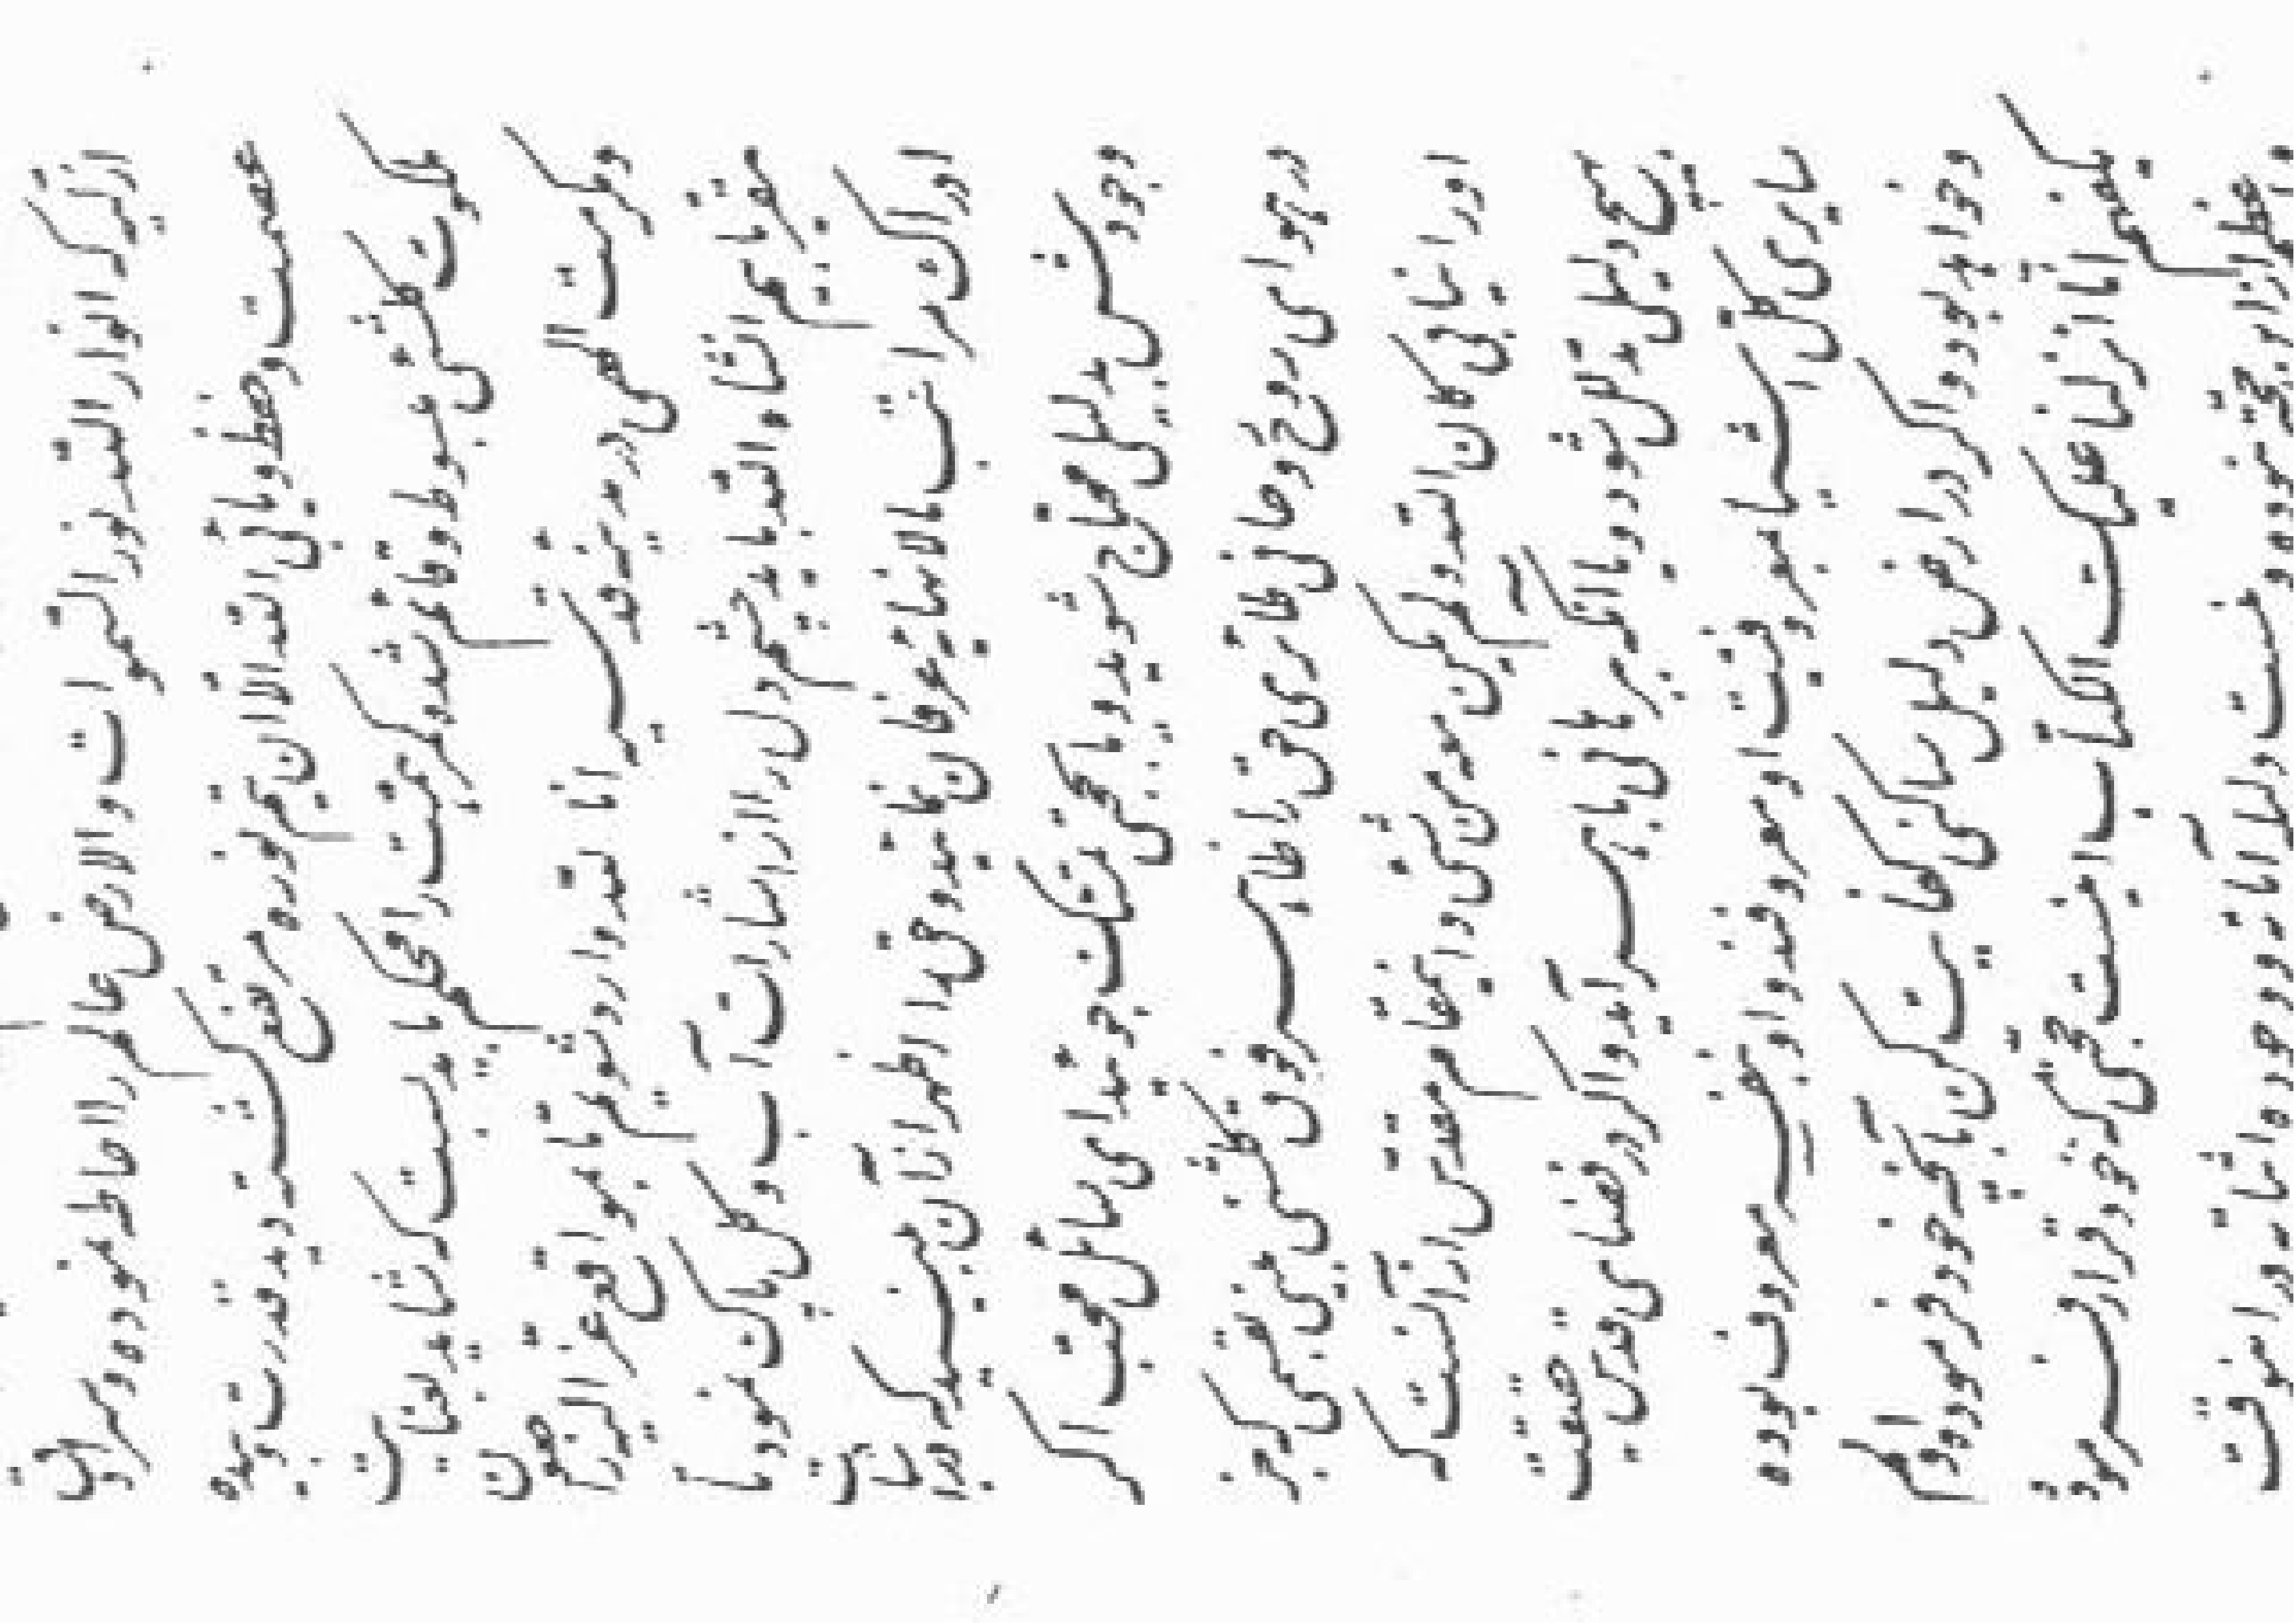 ازلیه که انوار الله نور السموات والارض عالم را احاطه نموده و سرادق
عصمت و حفظ ویأبی الله الا ان یتم نوره مرتفع گشته و ید قدرت و بیده
ملکوت کلشیء مبسوط و قائم شده کمر همت را محکم باید بست که شاید بعنایت
و مکرمت الهی در مدینه قدسیه انا لله وارد شویم تا بمواقع عز الیه راجعون
مقر یابیم انشاء الله باید چشم دل را از اشارات آب و گل پاک نمود تا
ادراک مراتب ما لا نهایه عرفان نماید و حق را اظهر از آن بیند که در اثبات
وجودش بدلیلی محتاج شود و یا بحجتی تمسک جوید ای سائل محب اگر
در هوای روح روحانی طائری حق را ظاهر فوق کلشیء بینی بقسمی که جز
او را نیابی کان الله ولم یکن معه من شیء و این مقام مقدس از آنست که
بهیچ دلیلی مدلل شود و یا آنکه ببرهانی باهر آید و اگر در فضای قدس حقیقت
سایری کل اشیا بمعروفیت او معروفند و او بنفسه معروف بوده
و خواهد بود و اگر در ارض دلیل ساکنی کفایت کن بآنچه خود فرموده اولم
یکفهم انا انزلنا علیک الکتاب اینست حجتی که خود قرار فرموده
و اعظم از این حجت نبوده و نیست دلیله آیاته و وجوده اثباته و در این وقت